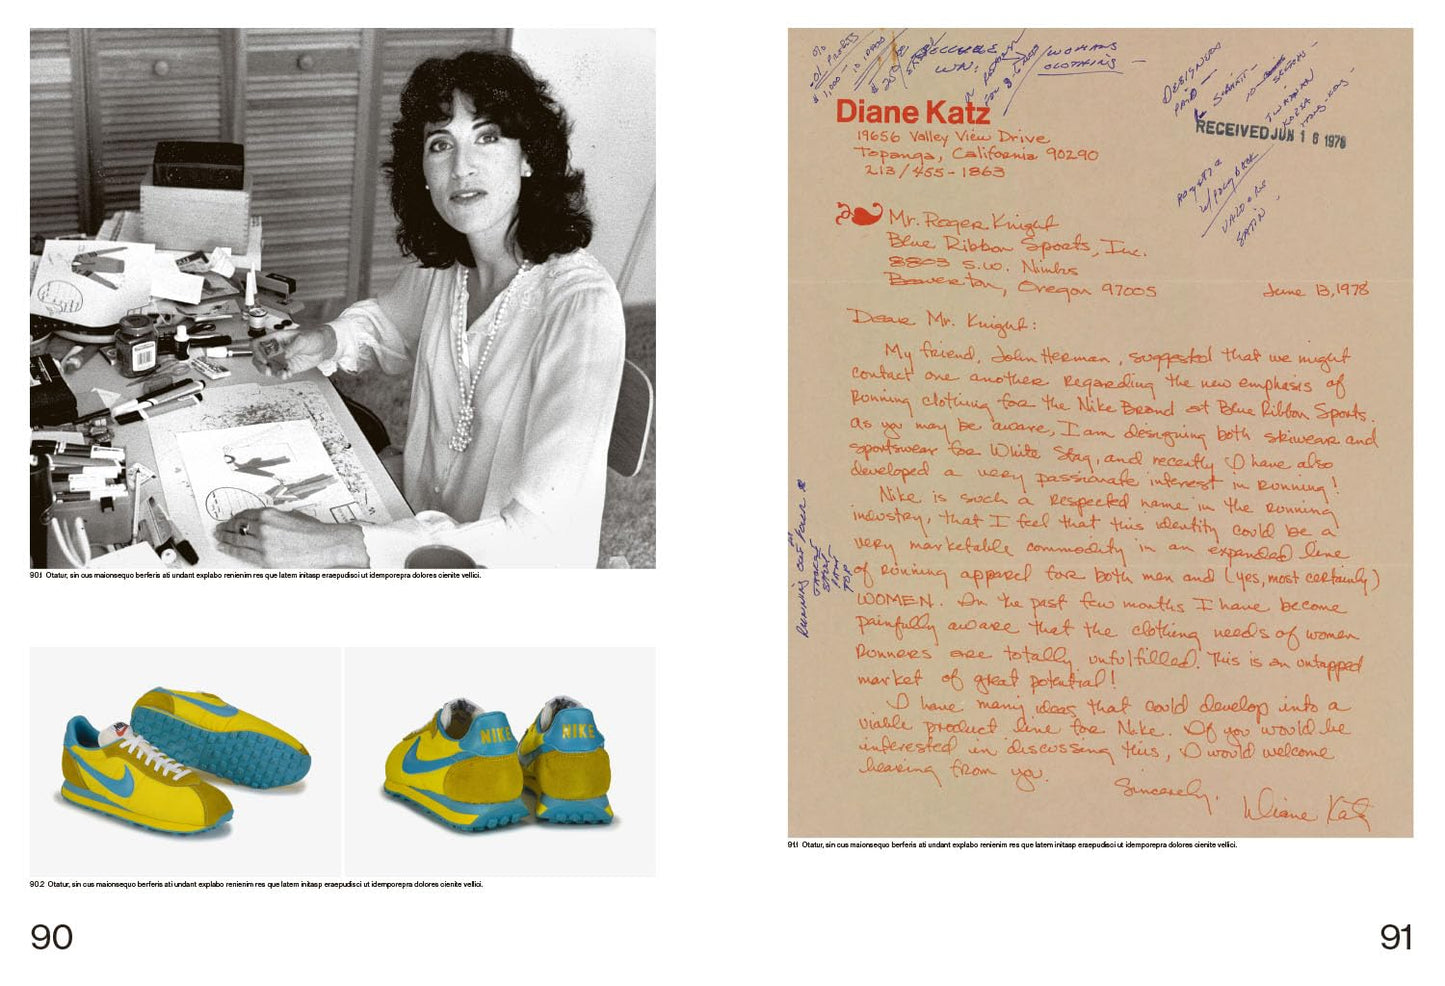 90.1 Otatur, sin cus maionsequo berferis ati undant explabo renienim res que latem initasp eraepudisci ut idemporepra dolores cienite vellici.
NIKE
NIKE
90.2 Otatur, sin cus maionsequo berferis ati undant explabo renienim res que latem initasp eraepudisci ut idemporepra dolores cienite vellici.
90
WOMANS
CLOTHING
DESIGNER
PAID
Diane Katz
RECEIVED JUN 16 1978
19656 Valley View Drive
Topanga, California 90290
213/455-1863
Mr. Roger Knight
Blue Ribbon Sports, Inc.
8803 S.W. Nimbs
Beaverton, Oregon 97005
June 13, 1978
Dear Mr. Knight:
My friend, John Herman, suggested that we might
contact one another regarding the new emphasis of
running clothing for the Nike Brand at Blue Ribbon Sports.
As you may be aware, I am designing both skiwear and
sportswear for White Stag, and recently I have also
developed a very passionate interest in running!
Nike is such a respected name in the running
industry, that I feel that this identity could be a
very marketable commodity in an expanded line
of running apparel for both men and (yes, most certainly)
WOMEN. In the past few months I have become
painfully aware that the clothing needs of women
runners are totally unfulfilled. This is an untapped
market of great potential!
I have many ideas that could develop into a
viable product line for Nike. If you would be
interested in discussing this, I would welcome
hearing from you.
Sincerely,
Diane Katz
91.1 Otatur, sin cus maionsequo berferis ati undant explabo renienim res que latem initasp eraepudisci ut idemporepra dolores cienite vellici.
91